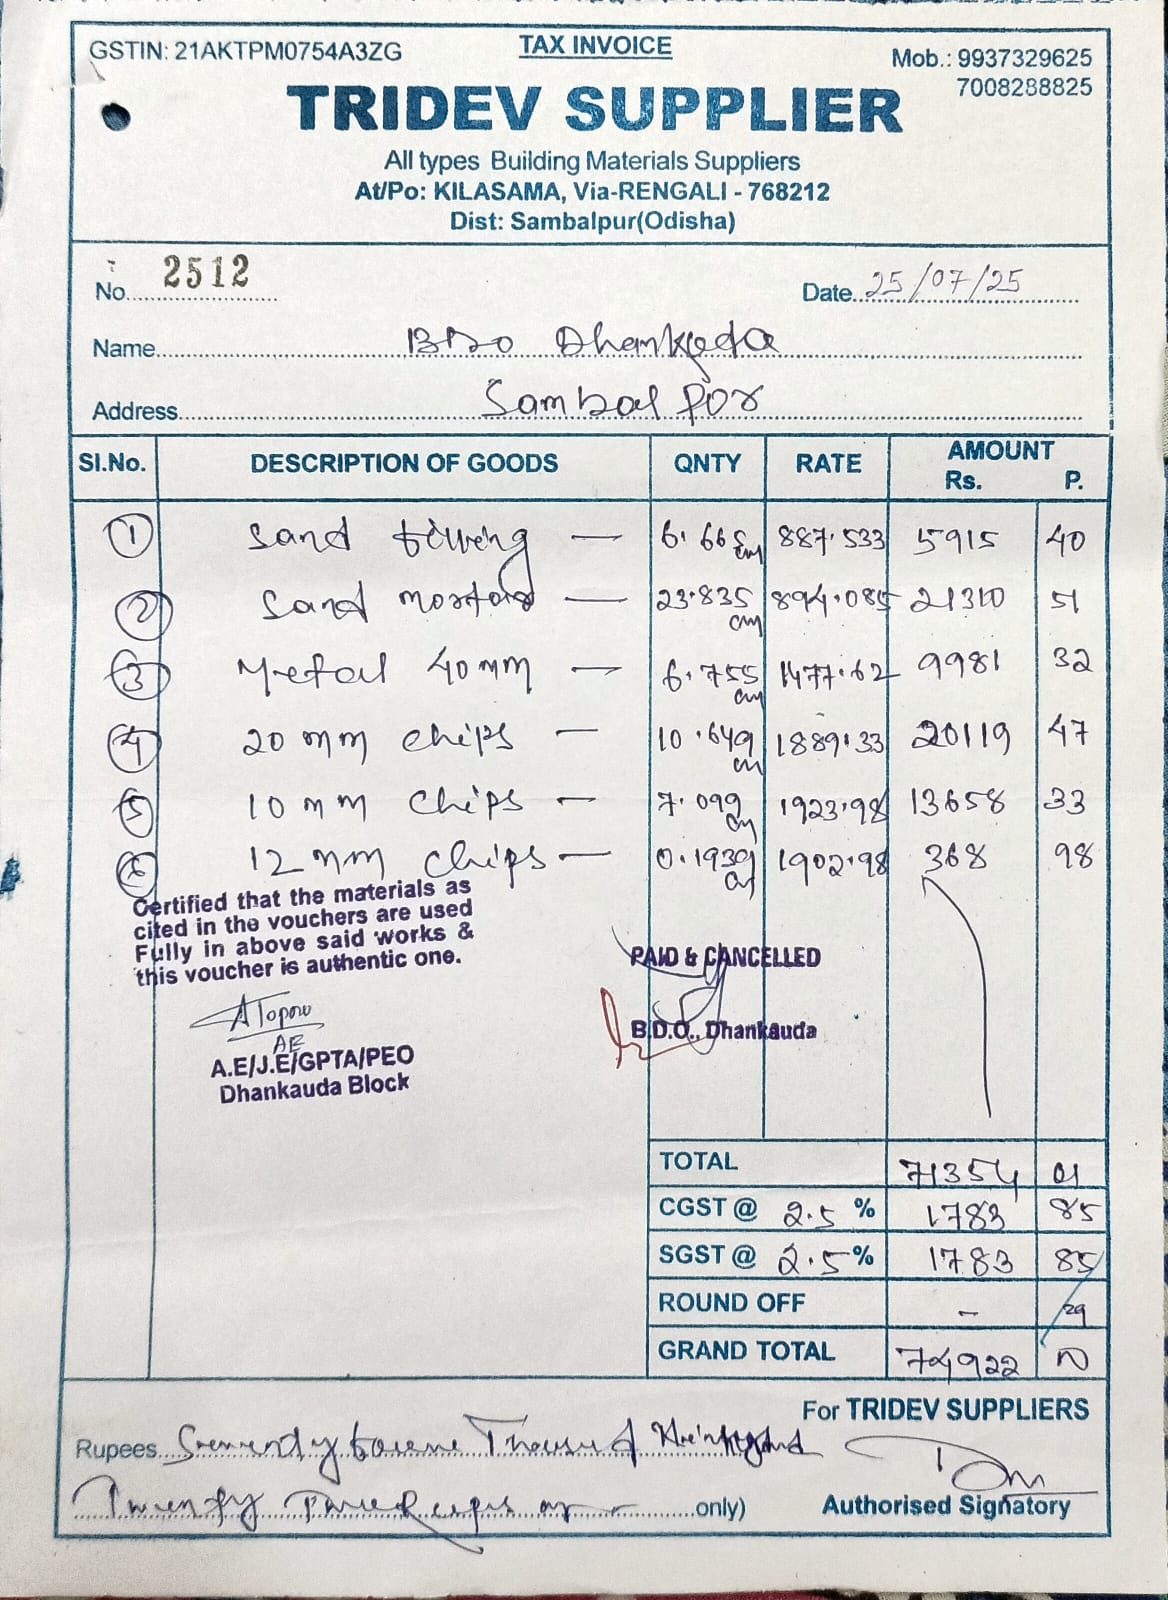 GSTIN: 21AKTPM0754A3ZG
TAX INVOICE
Mob.: 9937329625
7008288825
TRIDEV SUPPLIER
All types Building Materials Suppliers
At/Po: KILASAMA, Via-RENGALI - 768212
Dist: Sambalpur(Odisha)
No. 2512
Date 25/07/25
Name BDO Dhankauda
Address Sambalpur
Sl.No. DESCRIPTION OF GOODS QNTY RATE AMOUNT Rs. P.
1 Sand filling — 6.665 cm 887.533 5915 40
2 Sand mortar — 23.835 cm 894.085 21310 51
3 Metal 40mm — 6.755 cm 1477.62 9981 32
4 20 mm chips — 10.649 cm 1889.33 20119 47
5 10 mm chips — 7.099 cm 1923.98 13658 33
6 12 mm chips — 0.1939 cm 1902.98 368 98
Certified that the materials as
cited in the vouchers are used
Fully in above said works &
this voucher is authentic one.
PAID & CANCELLED
B.D.O., Dhankauda
AE
A.E/J.E/GPTA/PEO
Dhankauda Block
TOTAL 71354 01
CGST @ 2.5 % 1783 85
SGST @ 2.5 % 1783 85
ROUND OFF - 29
GRAND TOTAL 74922
For TRIDEV SUPPLIERS
Rupees Seventy Thousand
Twenty only)
Authorised Signatory